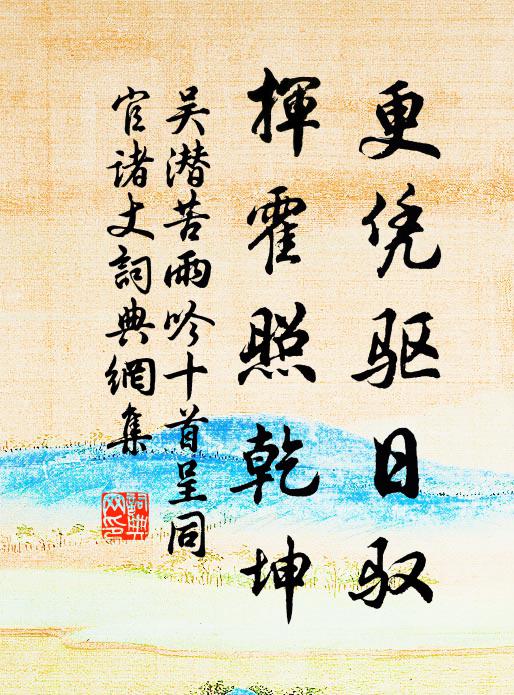 更凭驱日驭
揮霍照乾坤
吴潜苦雨吟十首呈同
官诸丈詞典網集